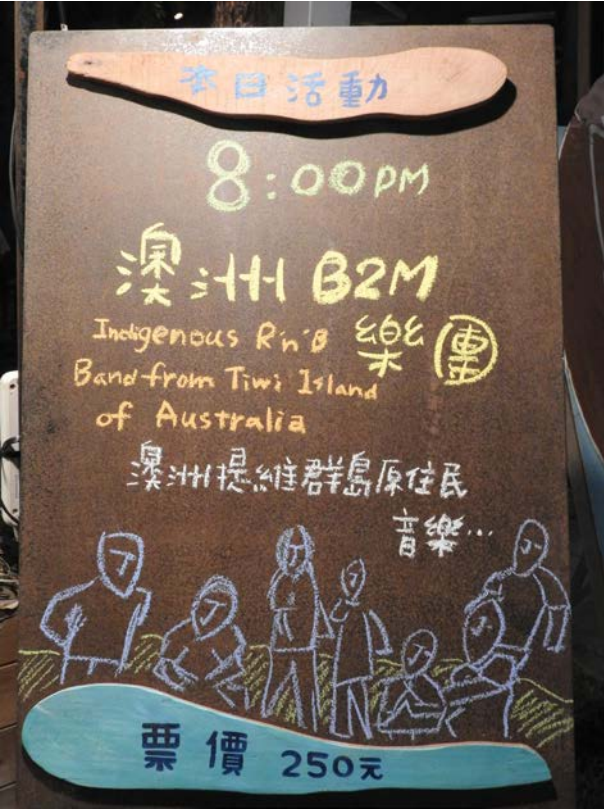 本日活動
8:00PM
澳洲 B2M
樂團
Indigenous R'n'B
Band from Tiwi Island
of Australia
澳洲提維群島原住民
音樂...
票價 250元